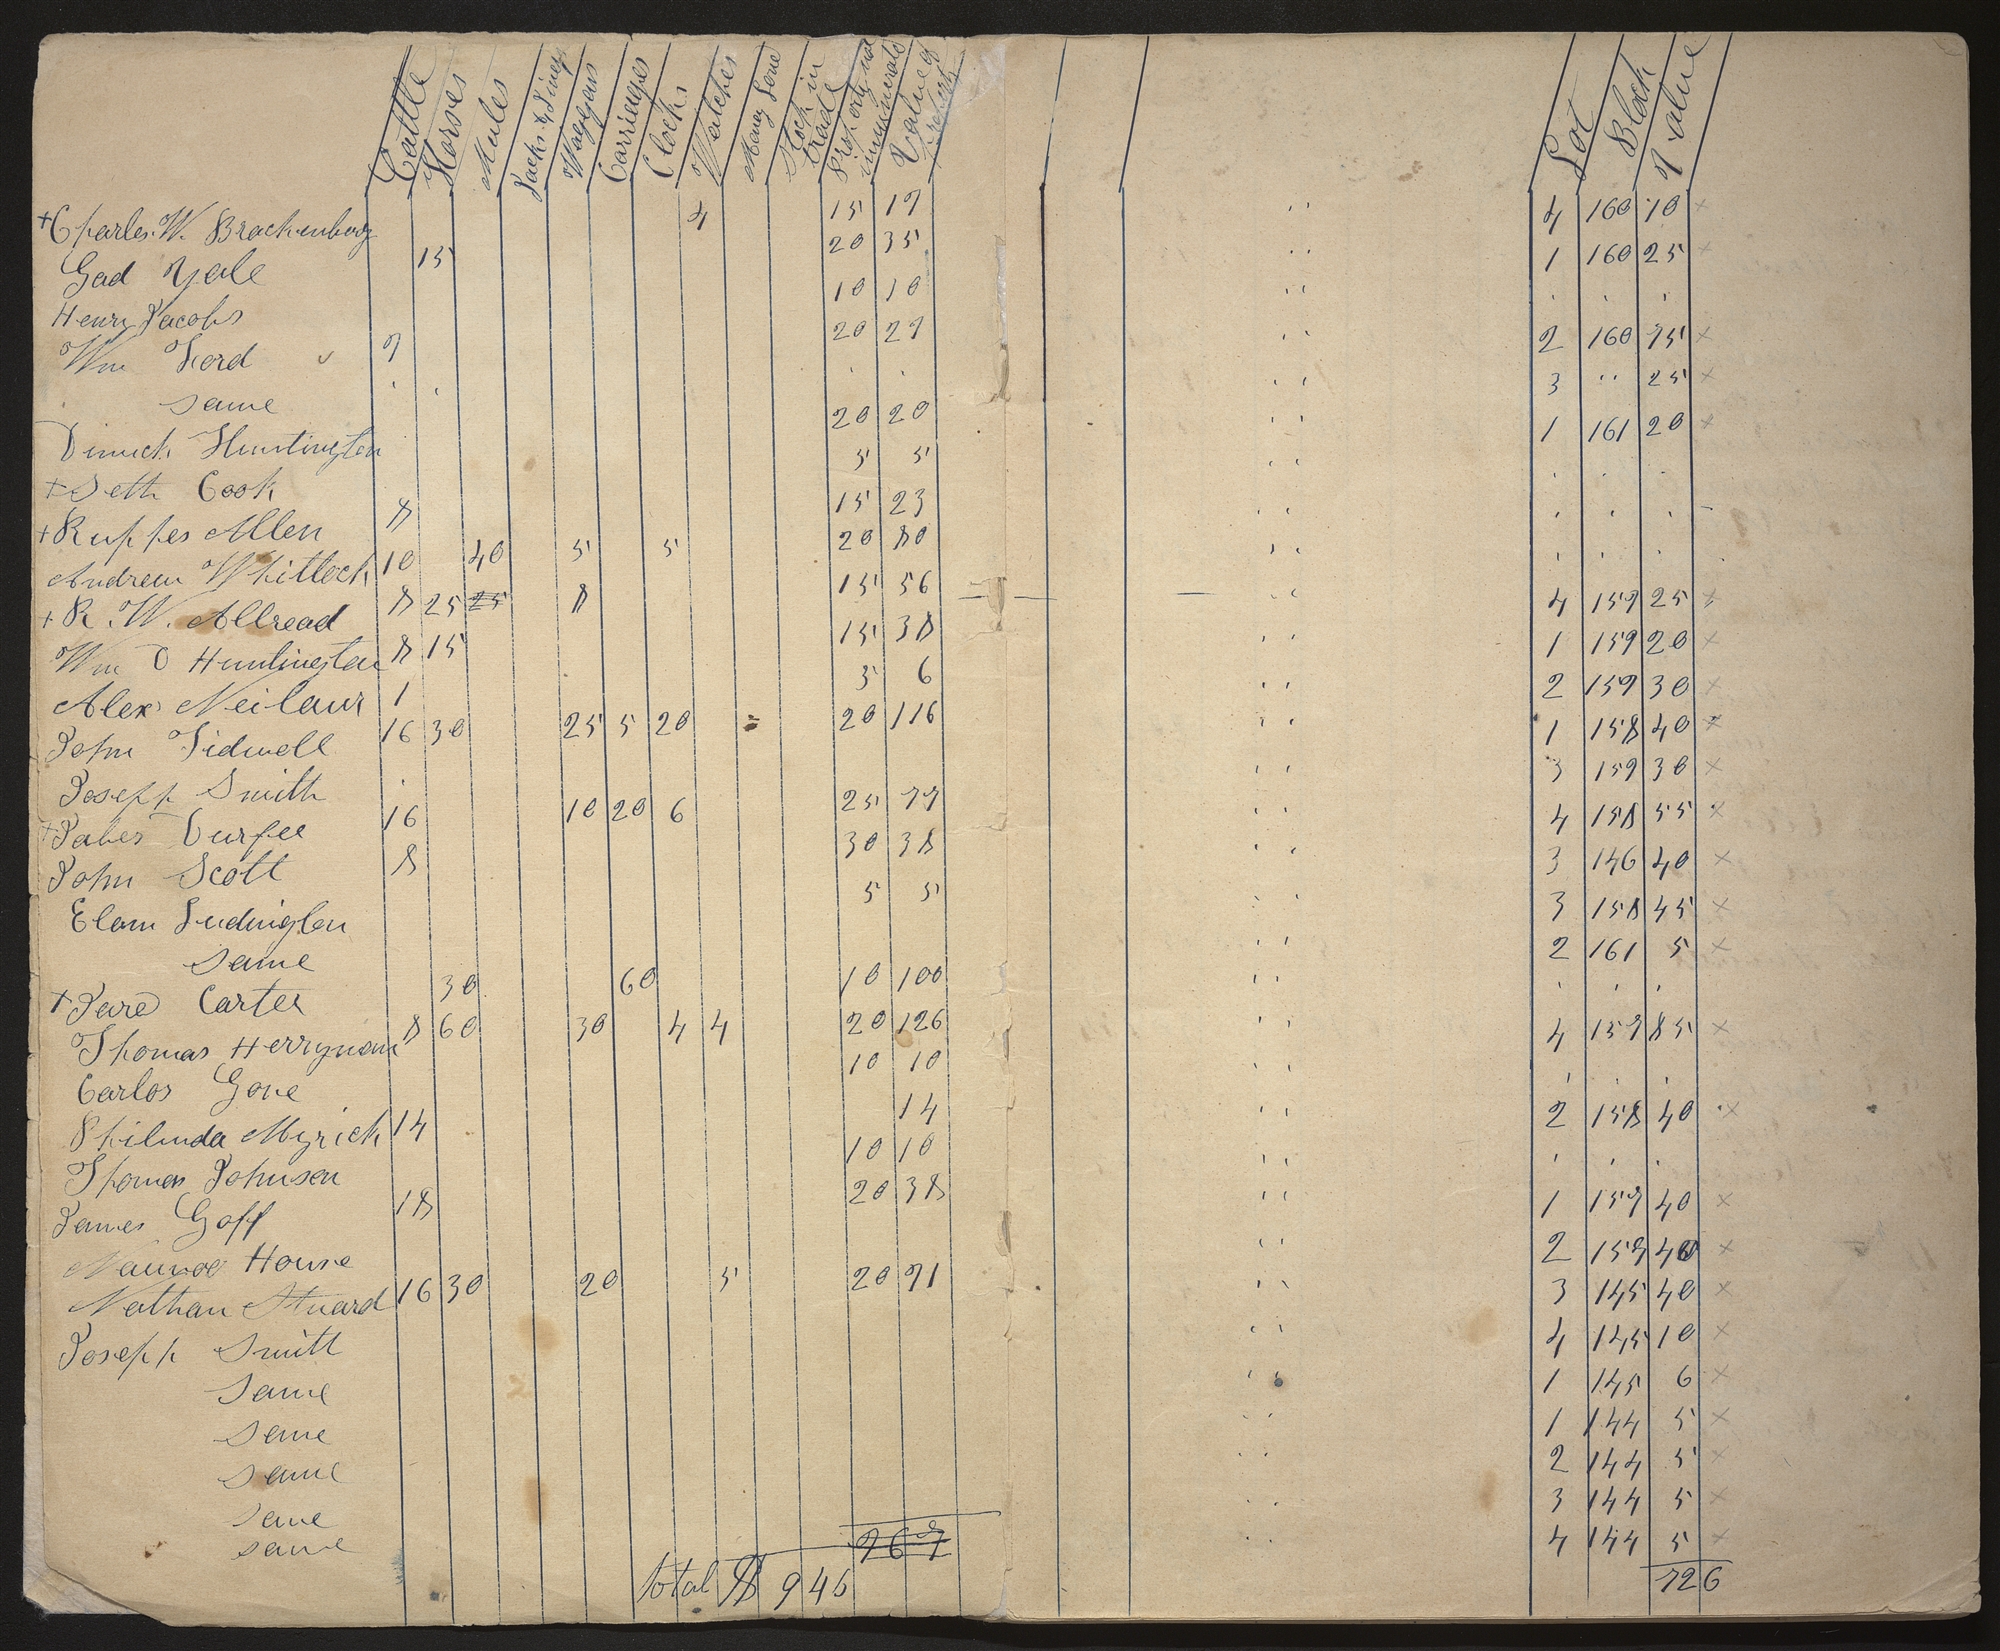 Cattle Horses Mules Jacks & Jineys Waggons Carriages Clocks Watches Money Lone Stock in trade Property not innumerated Value of property Lot Block Value
+ Charles W. Brackenbury 4 15 19 4 160 10 ×
Gad Yale 15 20 35 1 160 25 ×
Henry Jacobs 10 10
Wm Ford 7 20 27 2 160 75 ×
same 3 " 25 ×
Dimick Huntington 20 20 1 161 20 ×
+ Seth Cook 5 5
+ Ruffes Allen 8 15 23
Andrew Whitlock 10 40 5 5 20 80
+ R. W. Allread 8 25 25 8 15 56 4 159 25 ×
Wm D Huntington 8 15 15 38 1 159 20 ×
Alex Neilaur 1 5 6 2 159 30 ×
John Tidwell 16 30 25 5 20 20 116 1 158 40 ×
Joseph Smith 3 159 30 ×
+ Jabes Durfee 16 10 20 6 25 77 4 158 55 ×
John Scott 8 30 38 3 146 40 ×
Elam Ludington 5 5 3 158 45 ×
same 2 161 5 ×
+ Jared Carter 30 60 10 100
Thomas Herryman 8 60 30 4 4 20 126 4 157 85 ×
Carlos Gove 10 10
Philinda Myrick 14 14 2 158 40 ×
Thomas Johnson 10 10
James Goff 18 20 38 1 157 40 ×
Nauvoo House 2 157 40 ×
Nathan Stuard 16 30 20 5 20 91 3 145 40 ×
Joseph Smith 4 145 10 ×
same 1 145 6 ×
same 1 144 5 ×
same 2 144 5 ×
same 3 144 5 ×
same 4 144 5 ×
total $ 945 726